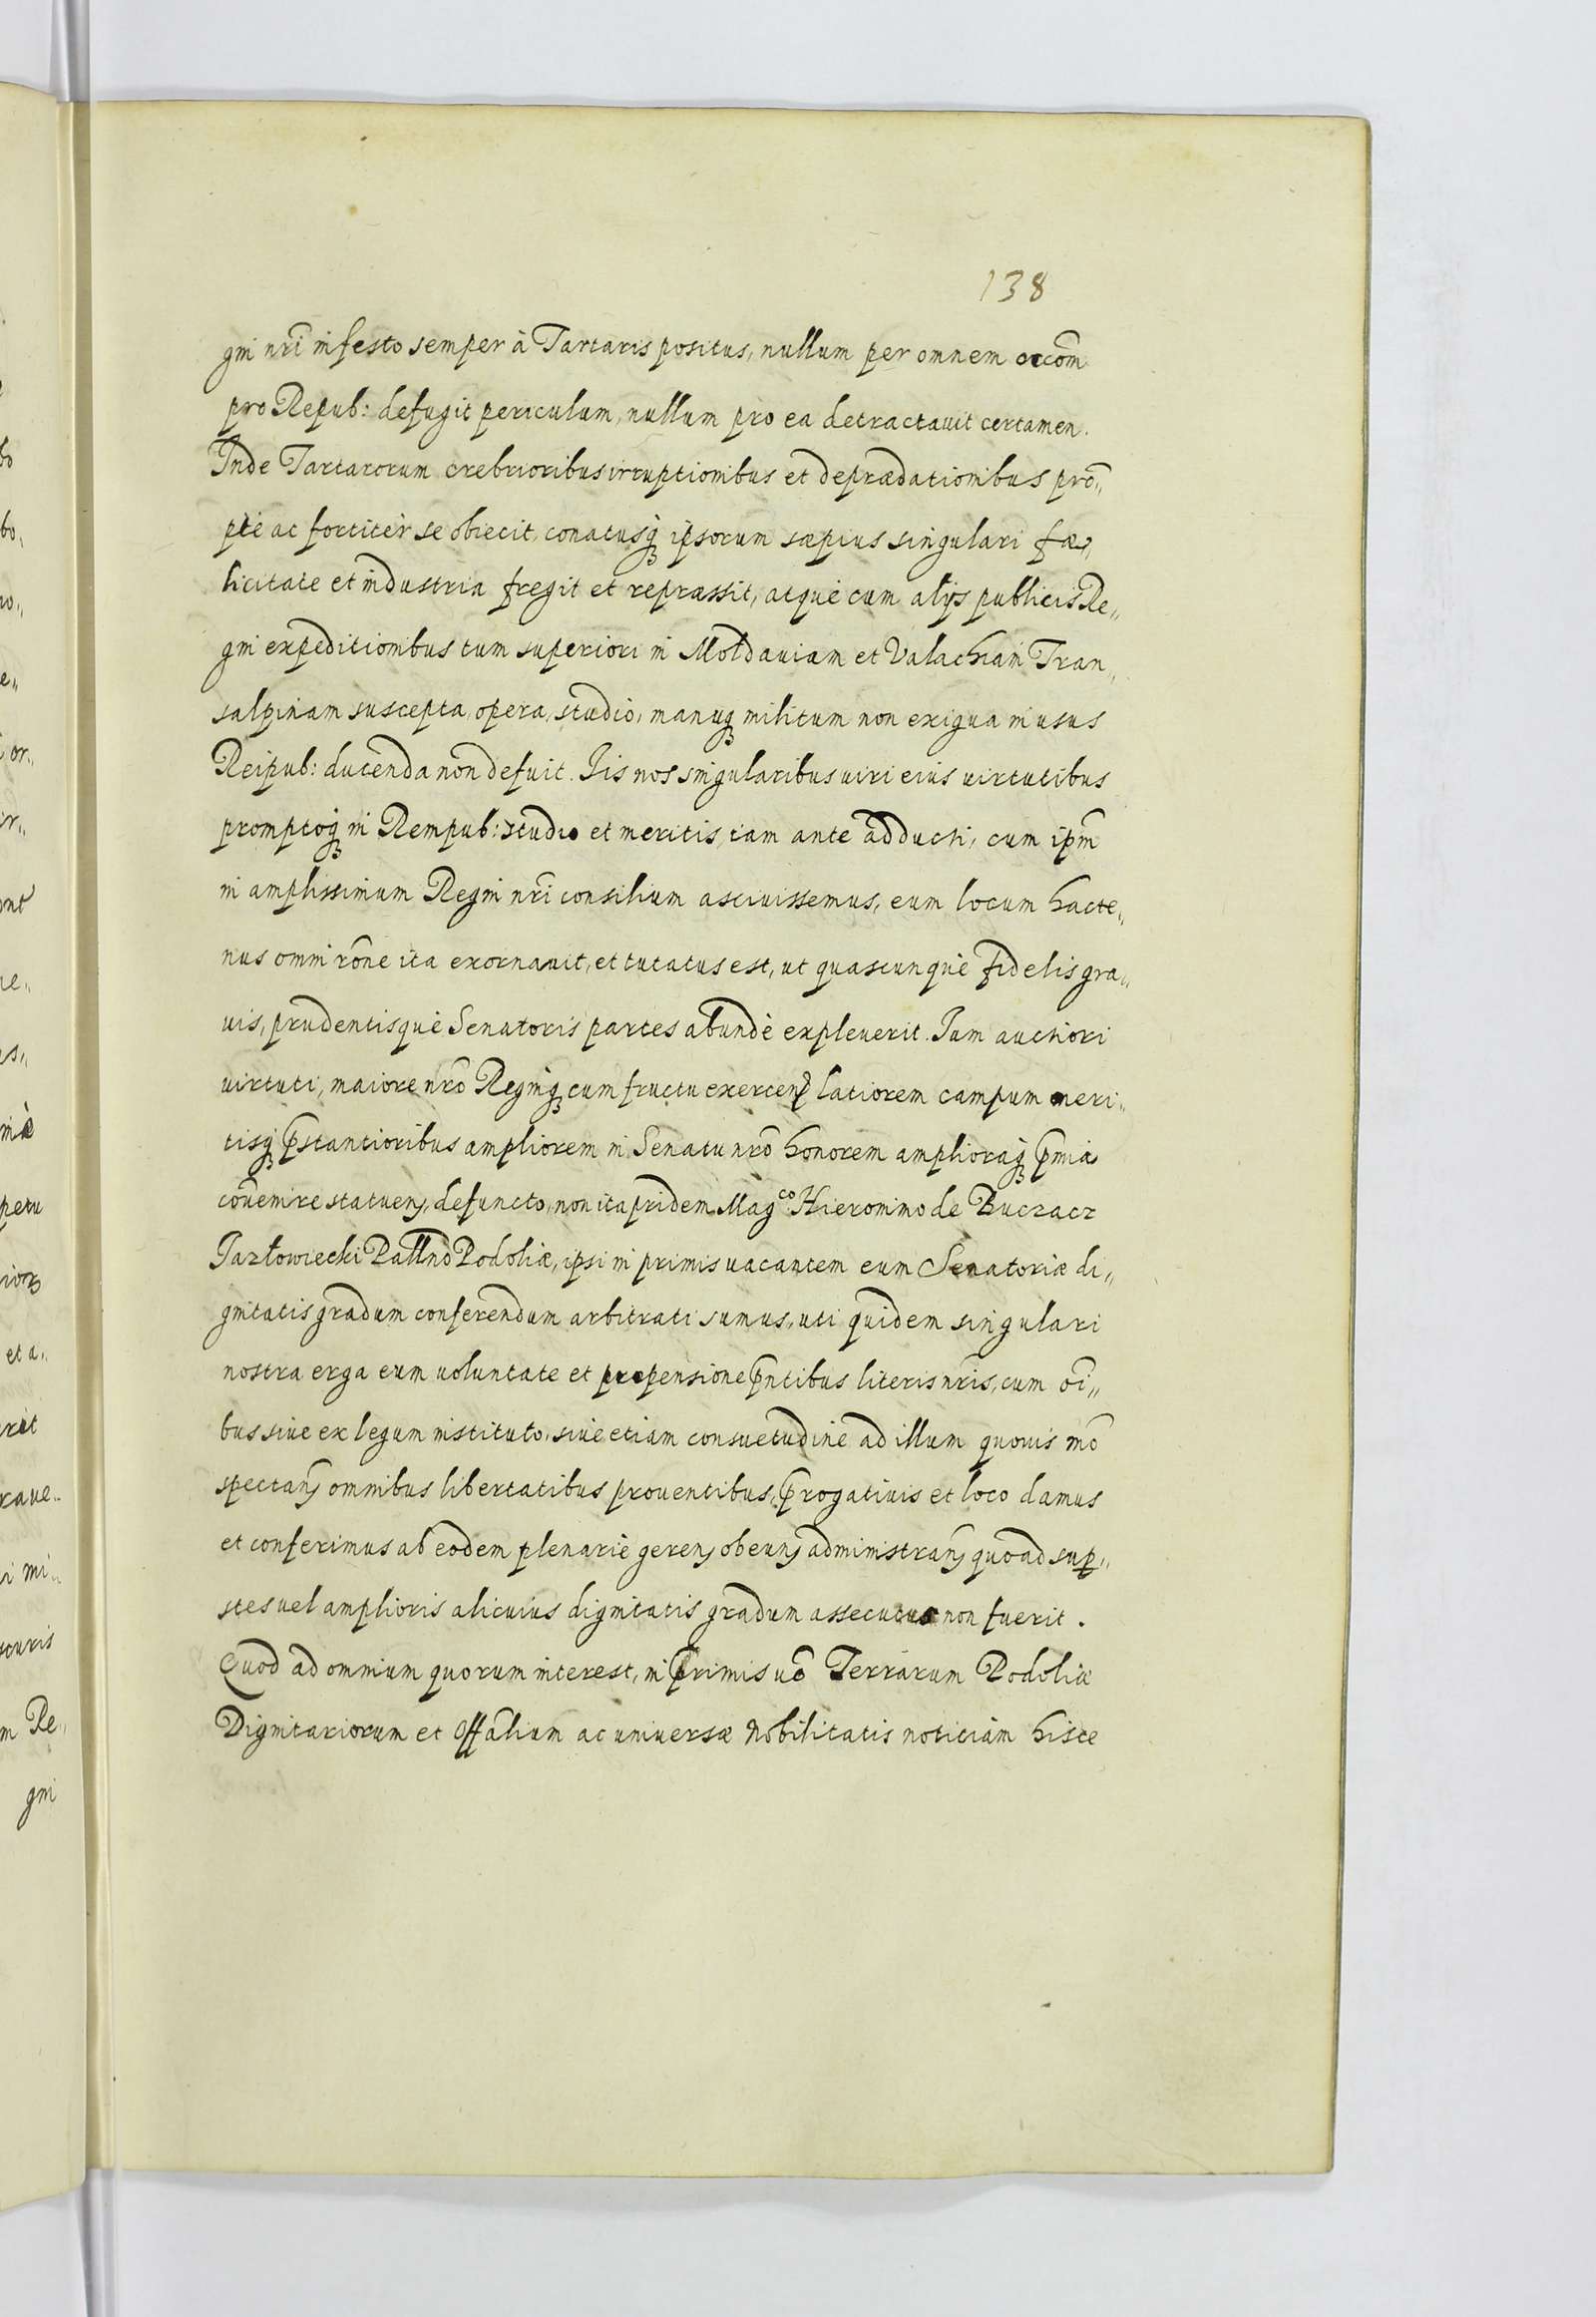 138
gni nri infesto semper à Tartaris positus, nullum per omnem occom
pro Repub: defugit periculum, nullum pro ea detractauit certamen.
Inde Tartarorum crebrioribus irruptionibus et depraedationibus pro„
ptè ac fortitèr se obiecit, conatusq́ꝫ ipsorum saepius singulari fae„
licitate et industria fregit et repraessit, atquè cum alijs publicis Re„
gni expeditionibus tum superiori in Moldauiam et Valachiam Tran„
salpinam suscepta, opera, studio, manuqꝫ militum non exigua in usus
Reipub: ducenda non defuit. Iis nos singularibus uiri eius uirtutibus
promptoq́ꝫ in Rempub: studio et meritis, iam ante adducti, cum ipm
in amplissimum Regni nri consilium asciuissemus, eum locum hacte„
nus omni rone ita exornauit, et tutatus est, ut quascunquè fidelis gra„
uis, prudentisquè Senatoris partes abundè expleuerit. Iam auctiori
uirtuti, maiore nro Regniqꝫ cum fructu exercend latiorem campum meri„
tisq́ꝫ pstantioribus ampliorem in Senatu nro honorem amplioraq́ꝫ pmia
conenire statuens, defuncto, non ita pridem Mag^co Hieronimo de Buczacz
Jazłowiecki Pallno Podoliae, ipsi in primis uacantem eum Senatoriae di„
gnitatis gradum conferendum arbitrati sumus, uti quidem singulari
nostra erga eum uoluntate et propensione pntibus literis nris, cum oi„
bus siue ex legum instituto, siuè etiam consuetudine ad illum quouis mo
spectans omnibus libertatibus prouentibus, progatiuis et loco damus
et conferimus ab eodem plenariè gerens obeuns administrans quoad sup„
stes uel amplioris alicuius dignitatis gradum assecutus non fuerit.
Quod ad omnium quorum interest, in primis uo Terrarum Podoliae
Dignitariorum et Offalium ac uniuersae Nobilitatis notitiam hisce
gni